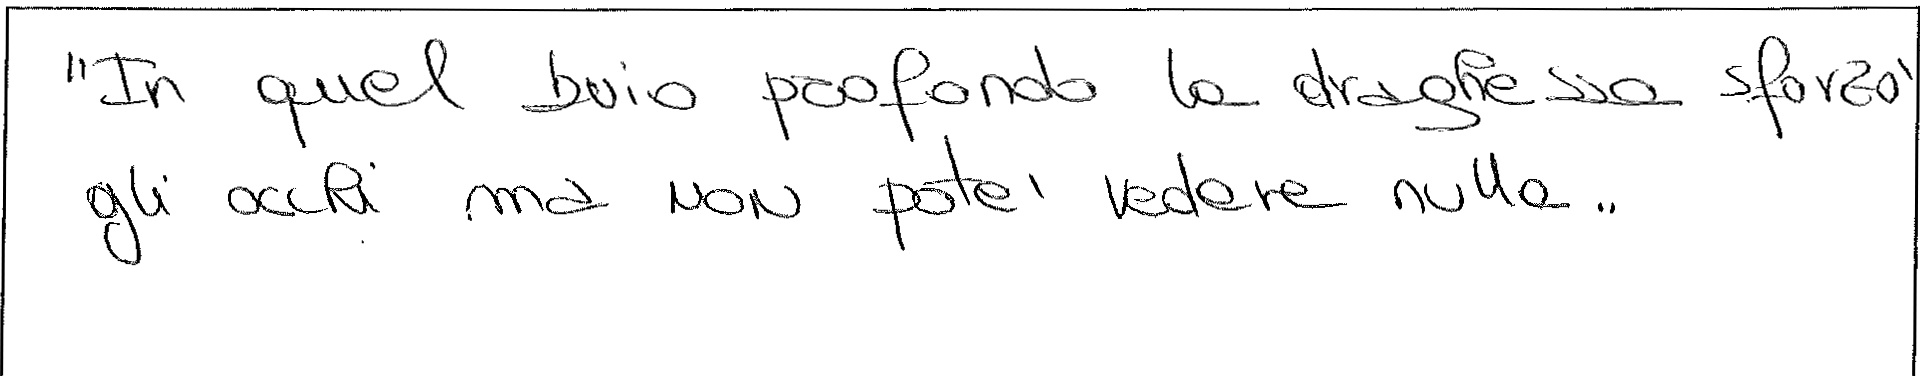 "In quel buio profondo la draghessa sforzo'
gli occhi ma non pote' vedere nulla„